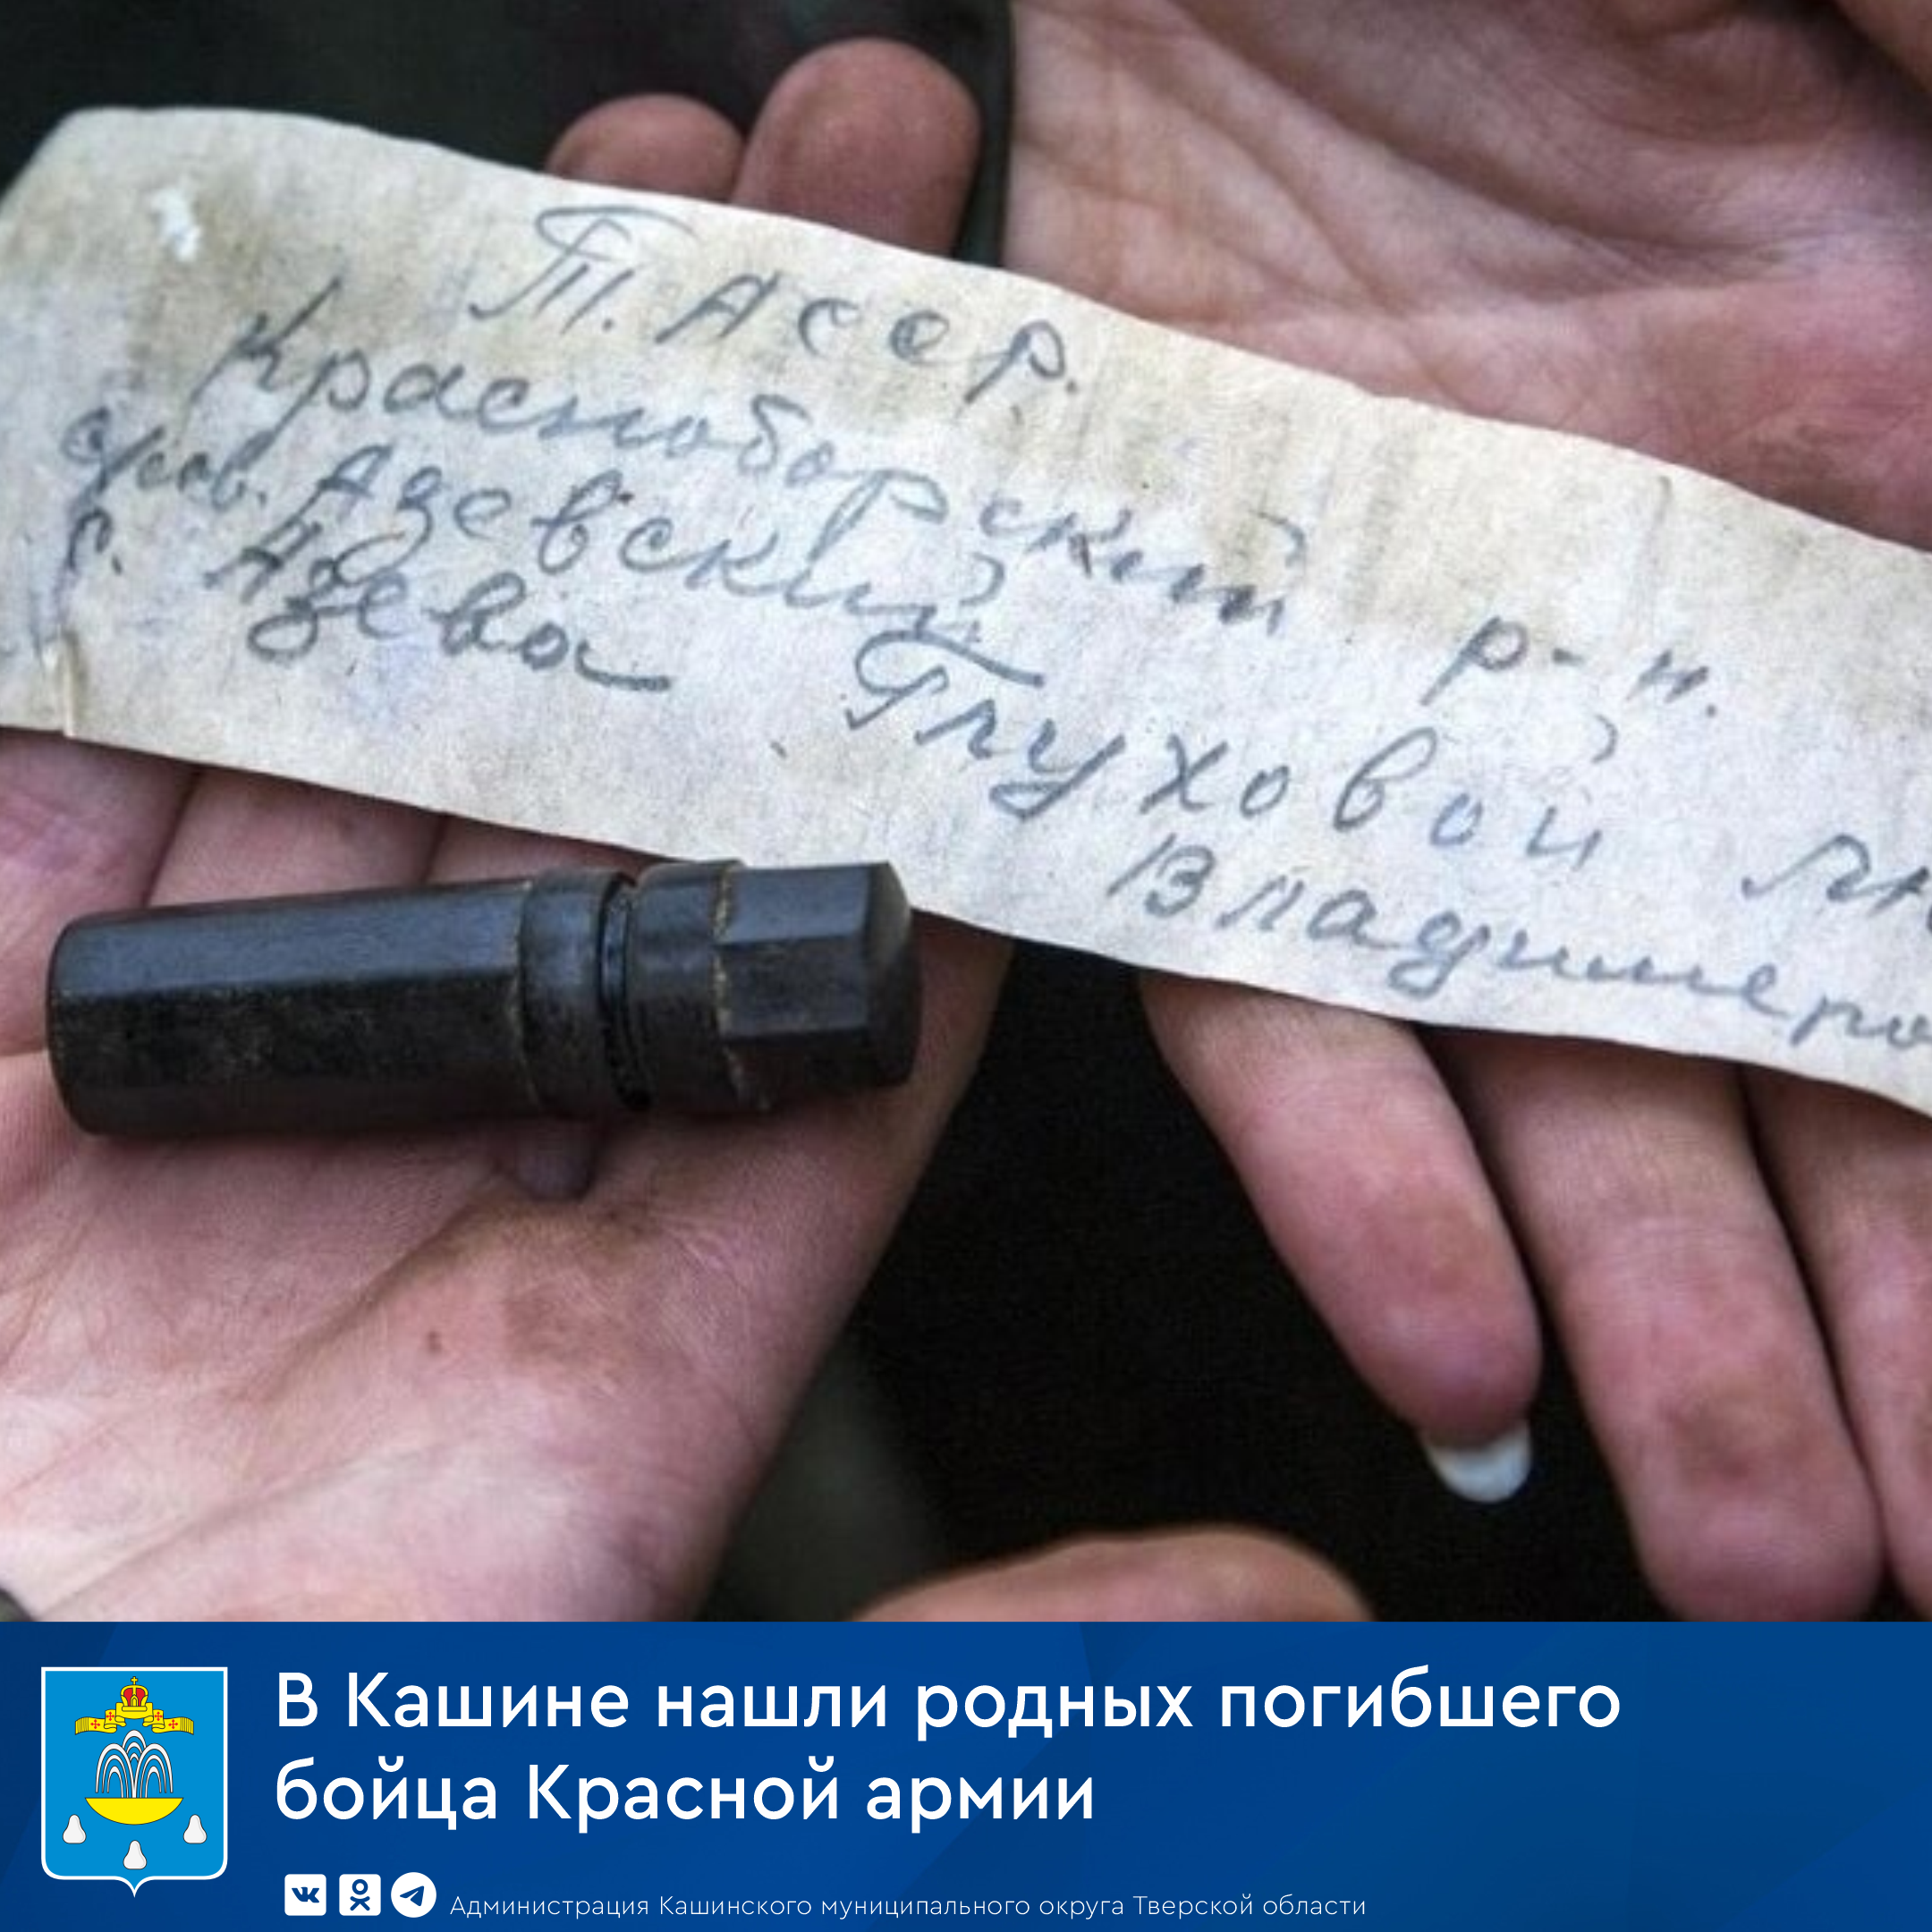 Т. АССР.
Краснoборский р-н.
дер. Азевский Глуховой
с. Азева Владимеро
В Кашине нашли родных погибшего
бойца Красной армии
Администрация Кашинского муниципального округа Тверской области